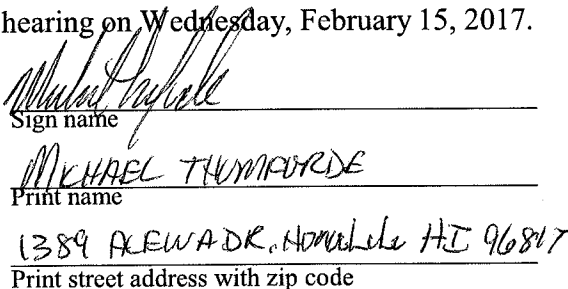 hearing on Wednesday, February 15, 2017.
Sign name
MICHAEL
Print name
1389 ALEWA DR. Honolulu HI 96817
Print street address with zip code